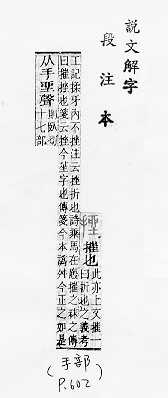 說文解字
段注本
摧也此亦上文摧一
曰折也之義考
工記揉牙內不挫注云挫折也詩乘馬在廄摧之秣之傳
曰摧挫也箋云挫今莝字也傳箋今本譌舛今正之如是
从手坐聲則臥切
十七部
(手部)
P.602